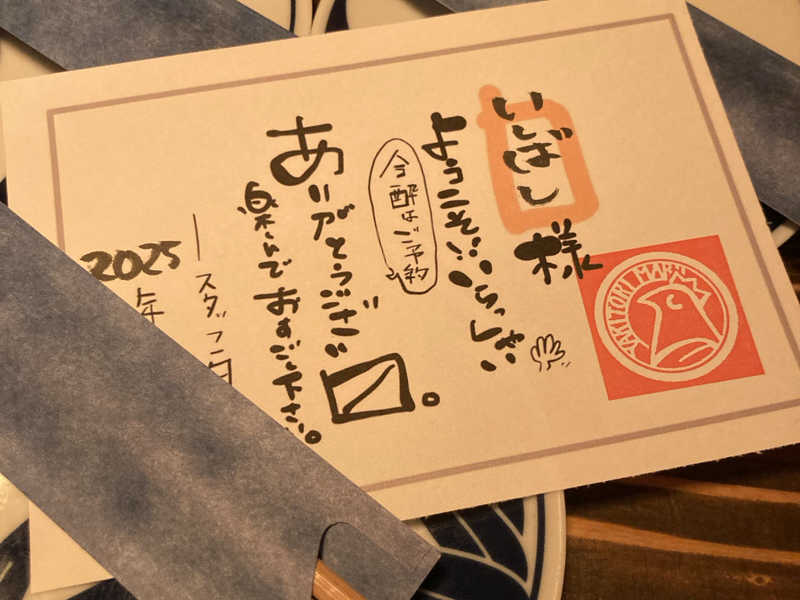 いしばし様
ようこそ!!いらっしゃい
今酔はご予約
ありがとうござい〼。
楽しんでおすごし下さい。
ースタッフ一同
2025年
YAKITORI MARU